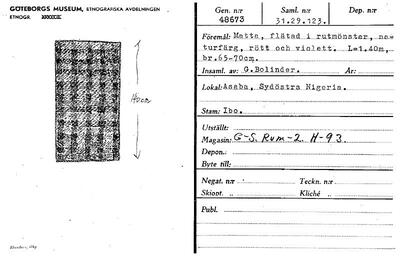 GÖTEBORGS MUSEUM, ETNOGRAFISKA AVDELNINGEN
ETNOGR.
140cm
Gen. nr
48673
Saml. nr
31.29.123.
Dep. nr
Föremål: Matta, flätad i rutmönster, na-
turfärg, rött och violett. L=1.40m,
br.65-70cm.
Insaml. av: G.Bolinder. År:
Lokal: Asaba, Sydöstra Nigeria.
Stam: Ibo.
Utställt:
Magasin: G-S. Rum-2. H-93.
Depon.:
Byte till:
Negat. nr Teckn. nr
Skiopt. „ Kliché „
Publ.